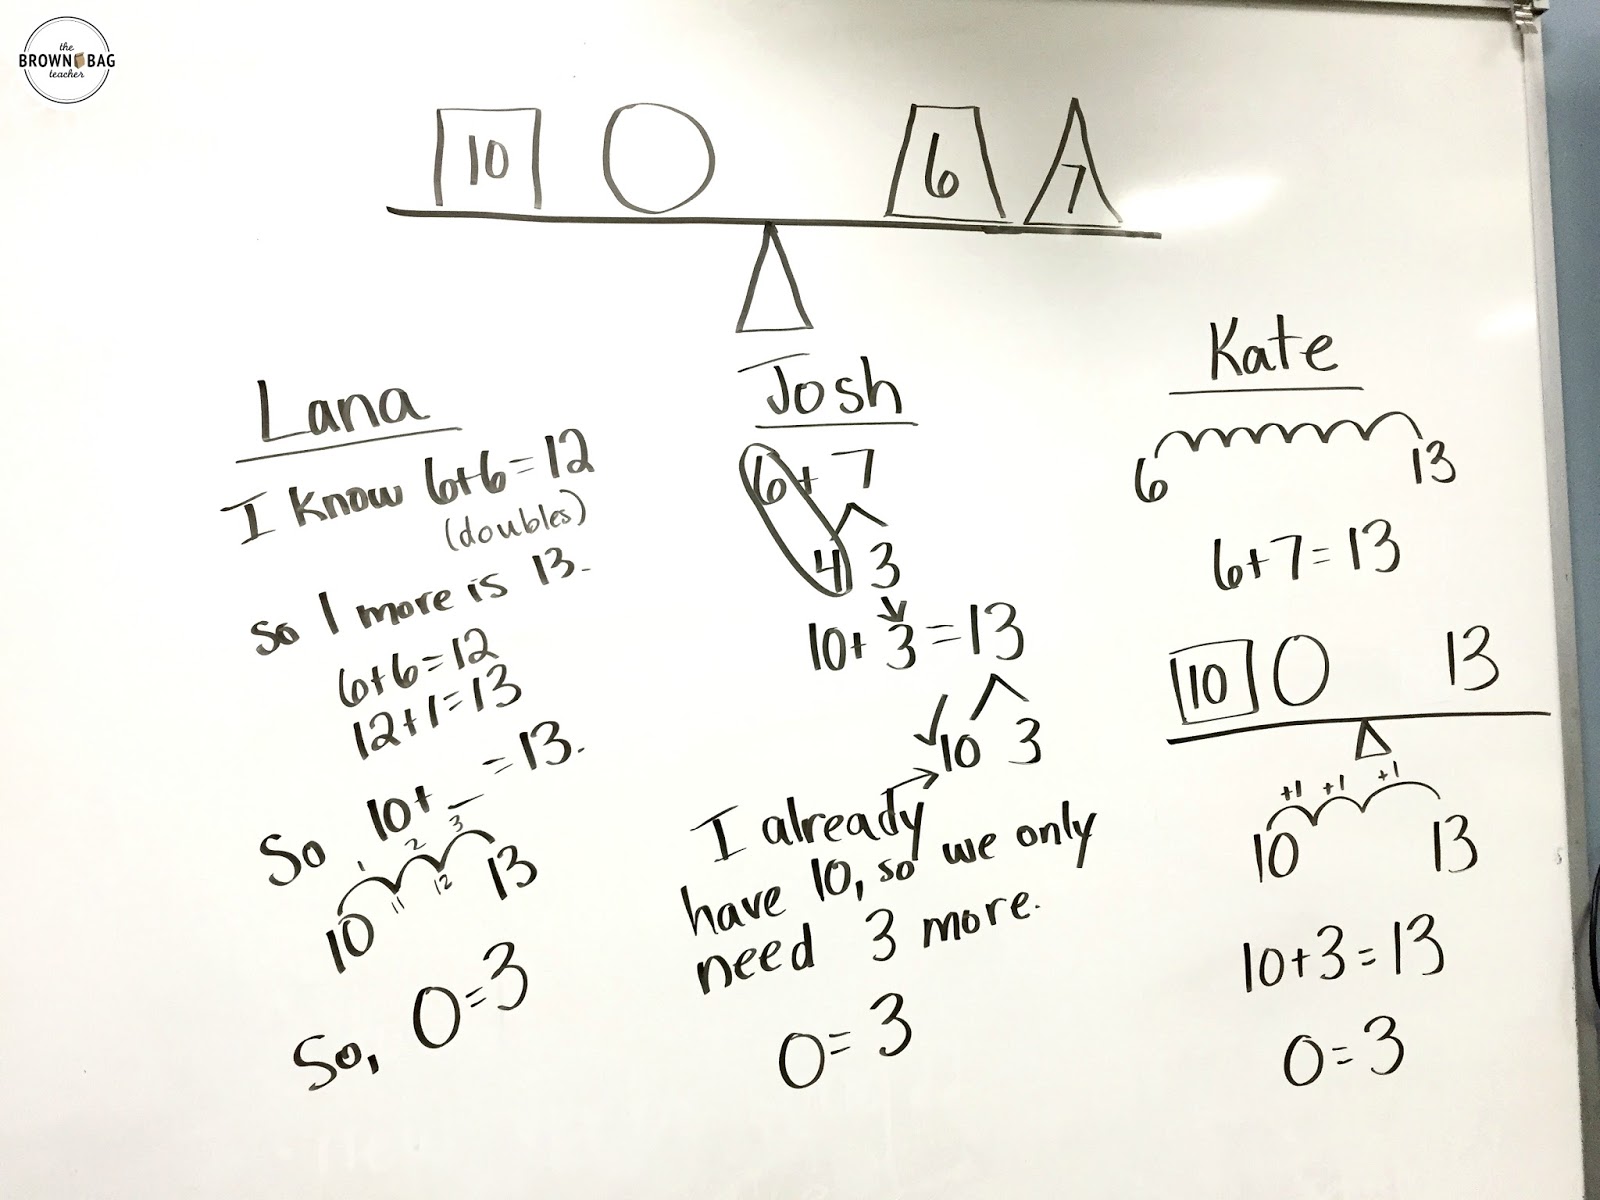 the
BROWN BAG
teacher
10 6 7
Lana
I know 6+6=12
(doubles)
so 1 more is 13.
6+6=12
12+1=13
So 10+_=13.
1 2 3
10 11 12 13
So, O=3
Josh
6+7
4 3
10+3=13
10 3
I already
have 10, so we only
need 3 more.
O=3
Kate
6 13
6+7=13
10 13
+1 +1 +1
10 13
10+3=13
O=3